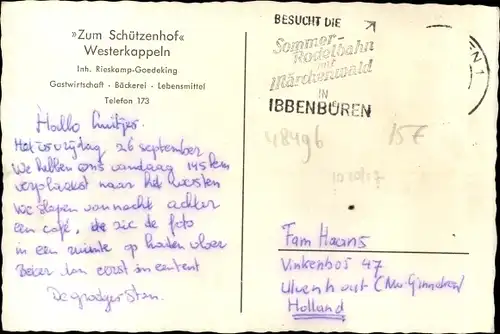 »Zum Schützenhof«
Westerkappeln
Inh. Rieskamp-Goedeking
Gastwirtschaft - Bäckerei - Lebensmittel
Telefon 173
Hallo
Het is vrijdag 26 september
We hebben ons vandaag 145 km
verplaatst naar het
We slapen vannacht achter
een café, de zie de foto
in een ruimte op houten vloer
Beter dan eerst in een tent
De groetjes Sten.
BESUCHT DIE
Sommer-
Rodelbahn
mit
Märchenwald
IN
IBBENBÜREN
48496
157
Fam Haans
Vinkenbos 47
Ulvenhout
Holland